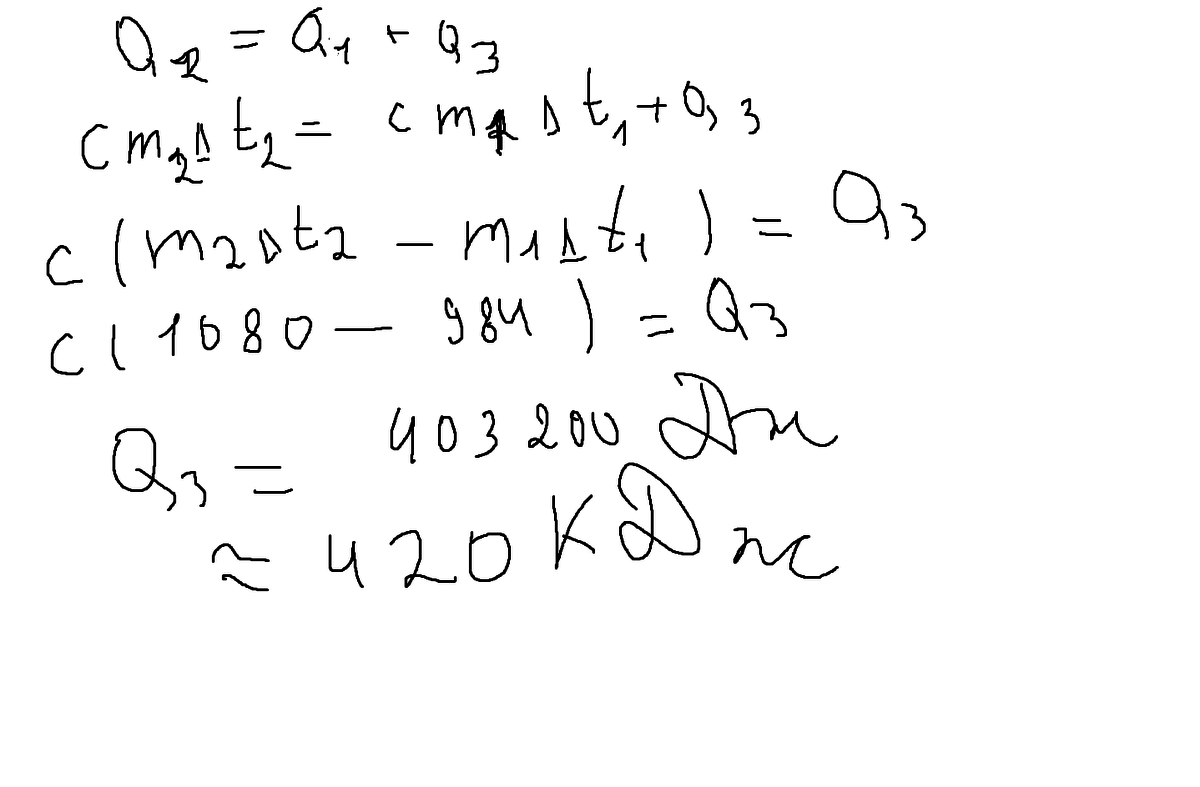 Q₂ = Q₁ + Q₃
cm₂Δt₂ = cm₁Δt₁ + Q₃
c(m₂Δt₂ − m₁Δt₁) = Q₃
c(1080 − 984) = Q₃
Q₃ = 403200 Дж
≈ 420 КДж